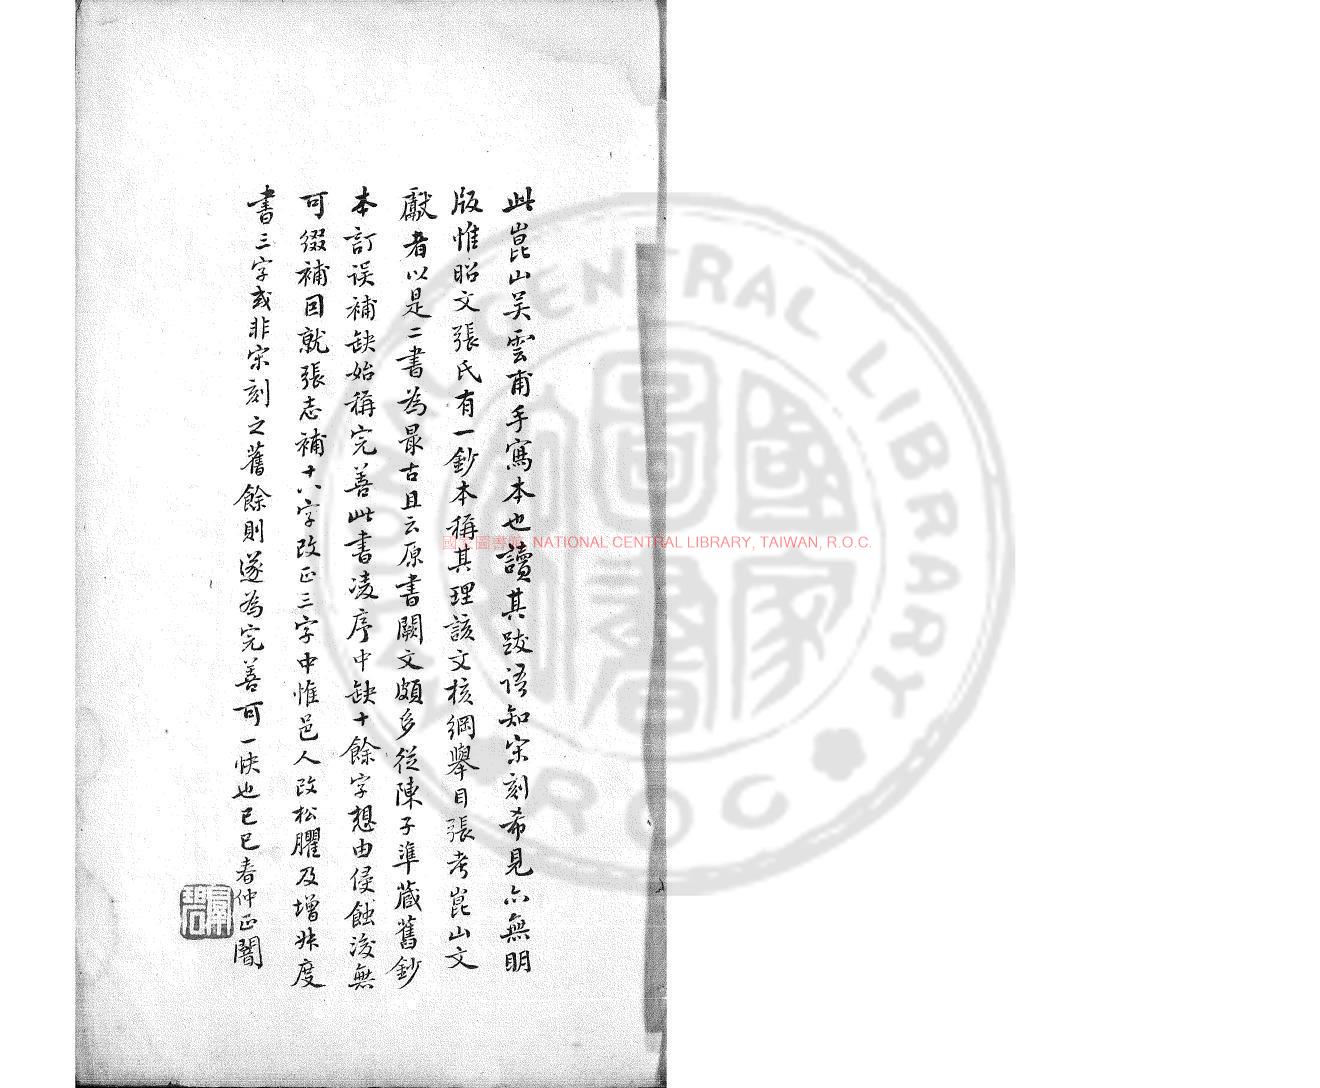 此崑山吴雲甫手寫本也讀其跋语知宋刻希見亦無明
版惟昭文張氏有一鈔本稱其理該文核綱舉目張考崑山文
獻者以是二書為最古且云原書闕文頗多從陳子準蔵舊鈔
本訂误補缺始稱完善此書凌序中缺十餘字想由侵蝕浚無
可缀補因就張志補十八字改正三字中惟邑人改松臞及增
度
書三字或非宋刻之舊餘則遂為完善可一快也己巳春仲正闇
國 圖書 NATIONAL CENTRAL LIBRARY, TAIWAN, R.O.C.
NATIONAL CENTRAL LIBRARY
ROC